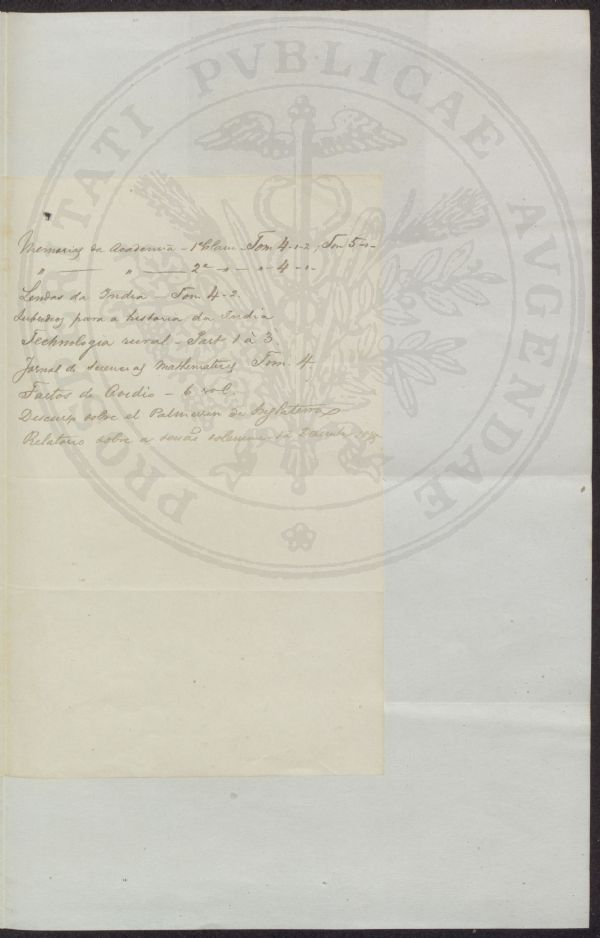 PROSPERITATI PVBLICAE AVGENDAE
Memorias da Academia - 1ª Classe - Tom 4-1-2, Tom 5-1-
" — " — 2ª -"- "- 4 -1-
Lendas da India — Tom 4-2.
Subsidios para a historia da India
Technologia rural - Part 1 à 3
Jornal de Sciencias Mathematicas Tom. 4.
Fastos de Ovidio - 6 vol.
Discurso sobre el Palmeirin de Inglaterra
Relatorio sobre a sessão solemne 12 Dezembr